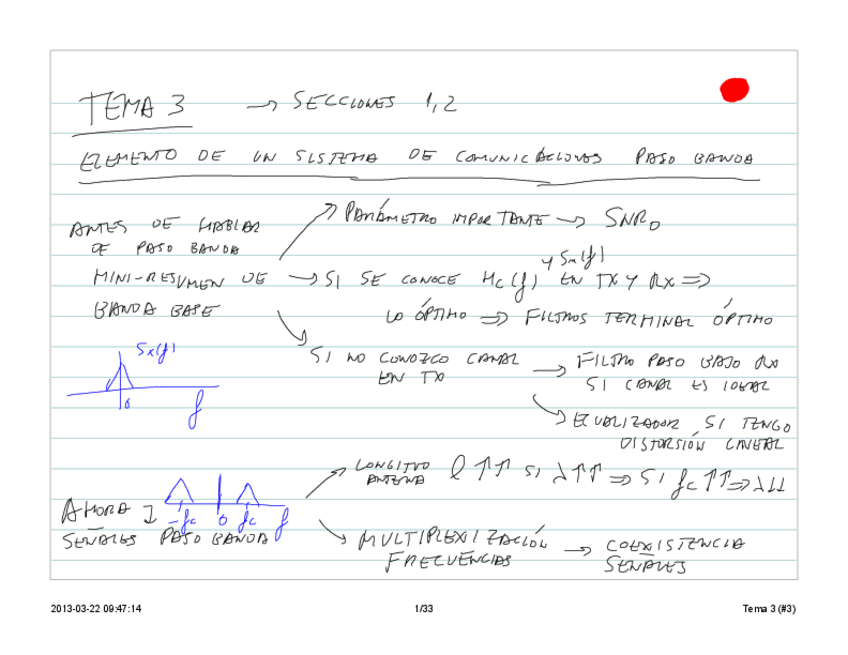 TEMA 3 → SECCIONES 1,2
ELEMENTO DE UN SISTEMA DE COMUNICACIONES PASO BANDA
ANTES DE HABLAR
DE PASO BANDA
MINI-RESUMEN DE
BANDA BASE
→ PARÁMETRO IMPORTANTE → SNRo
y Sn(f)
→ SI SE CONOCE Hc(f) EN TX Y RX ⇒
LO ÓPTIMO ⇒ FILTROS TERMINAL ÓPTIMO
SI NO CONOZCO CANAL
EN TX
→ FILTRO PASO BAJO RX
SI CANAL ES IDEAL
→ ECUALIZADOR SI TENGO
DISTORSIÓN LINEAL
Sx(f)
0
f
AHORA
SEÑALES PASO BANDA
-fc 0 fc f
→ LONGITUD
ANTENA
l ↑↑ SI λ↑↑ ⇒ SI fc ↑↑ ⇒ λ↓↓
→ MULTIPLEXIZACIÓN
FRECUENCIAS
→ COEXISTENCIA
SEÑALES
2013-03-22 09:47:14 1/33 Tema 3 (#3)